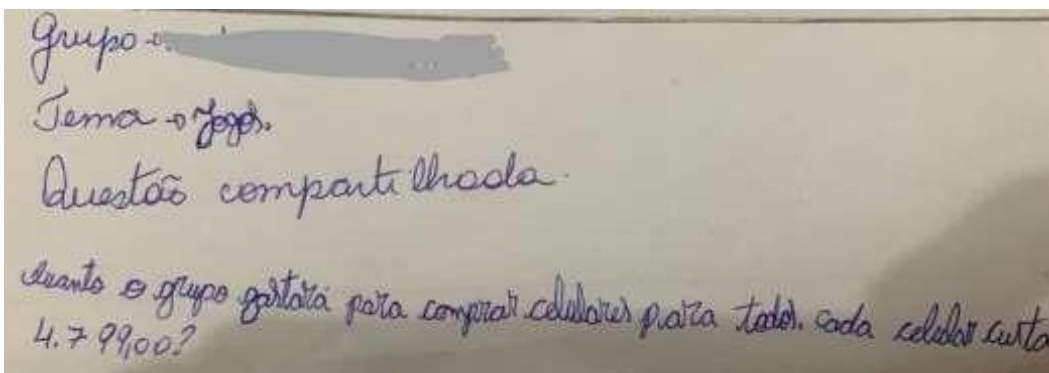 Grupo →
Tema → Jogos.
Questão compartilhada.
Quanto o grupo gastará para comprar celulares para todos. cada celular custa
4.799,00?